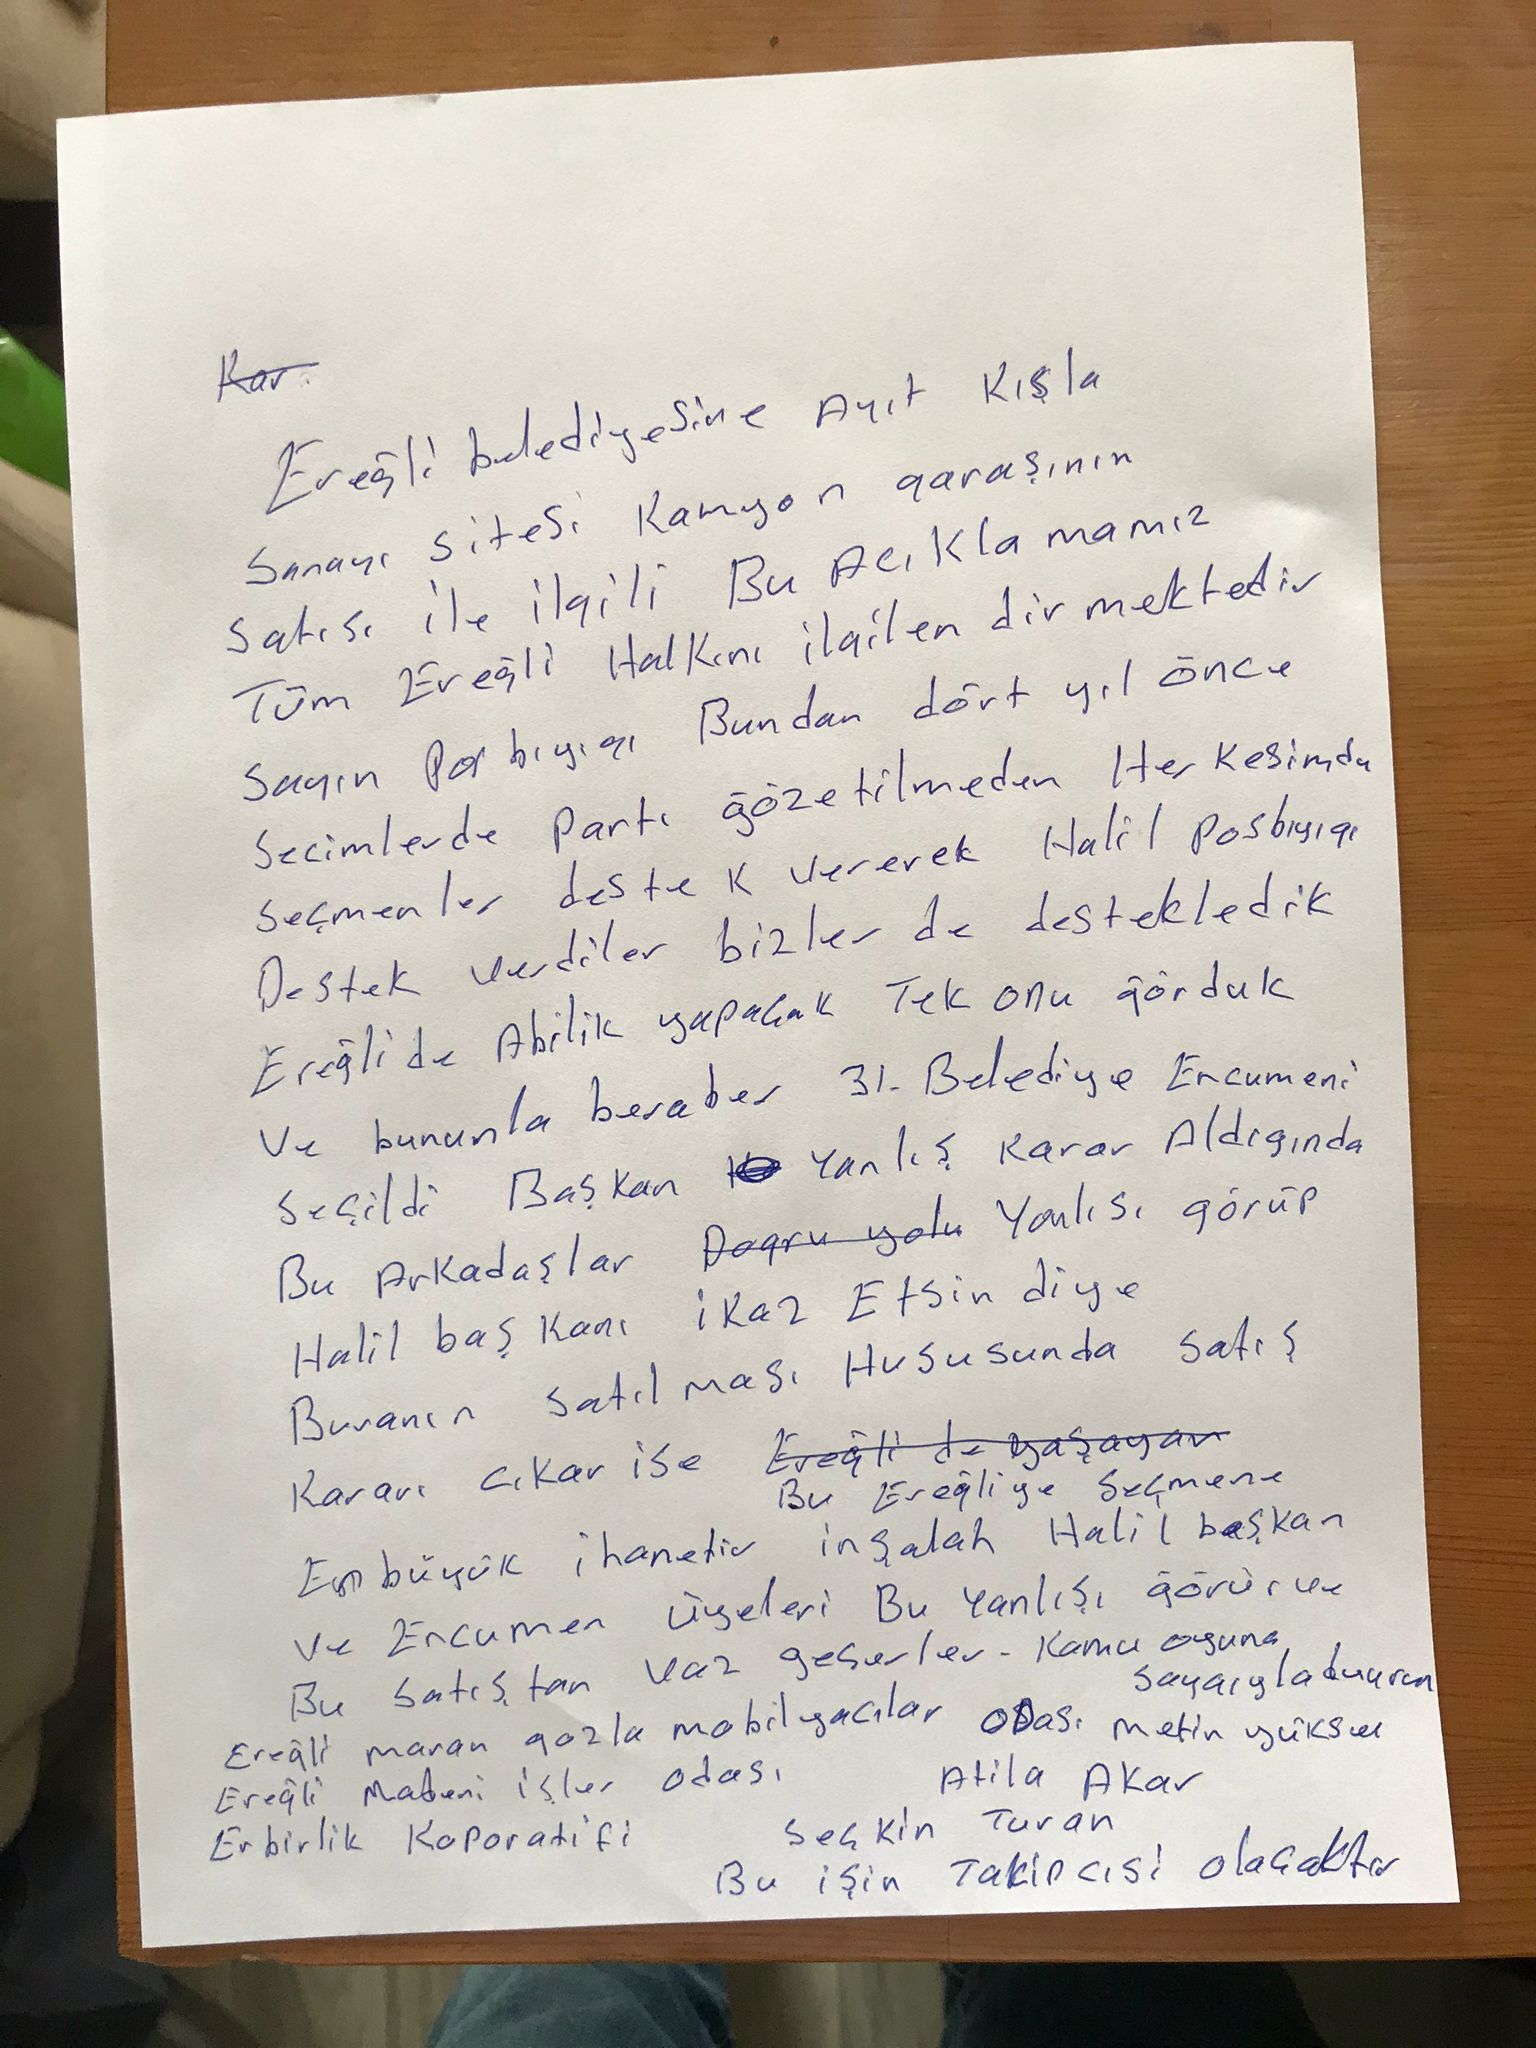 Kar.
Ereğli belediyesine Ayıt Kışla
Sanayı sitesi Kamyon garaşının
Satısı ile ilgili Bu Acıkla mamız
Tüm Ereğli Halkını ilgilen dir mektedir
Sayın Posbıyıgı Bundan dört yıl önce
Secimlerde Partı gözetilmeden Her Kesimde
Seçmenler destek vererek Halil Posbıyıgı
Destek verdiler bizler de destekledik
Ereğlide Abilik yapacak Tek onu görduk
Ve bununla beraber 31. Belediye Encumeni
Seçildi Başkan Yanlış Karar Aldıgında
Bu Arkadaşlar Dogru yolu Yanlısı görüp
Halil başkanı ikaz Etsin diye
Buranın satılması Hususunda satış
Kararı cıkar ise Ereğli de yaşayan
Bu Ereğliye Seçmene
En büyük ihanetir inşalah Halil başkan
Ve Encumen üyeleri Bu Yanlışı görür ve
Bu satıştan vaz geserler. Kamu oyuna
Saygıyla duyurun
Ereğli maran gozla mobilyacılar odası metin yüksel
Ereğli Madeni işler odası Atila Akar
Erbirlik Koporatifi Seçkin Turan
Bu işin Takipcisi olacaktır